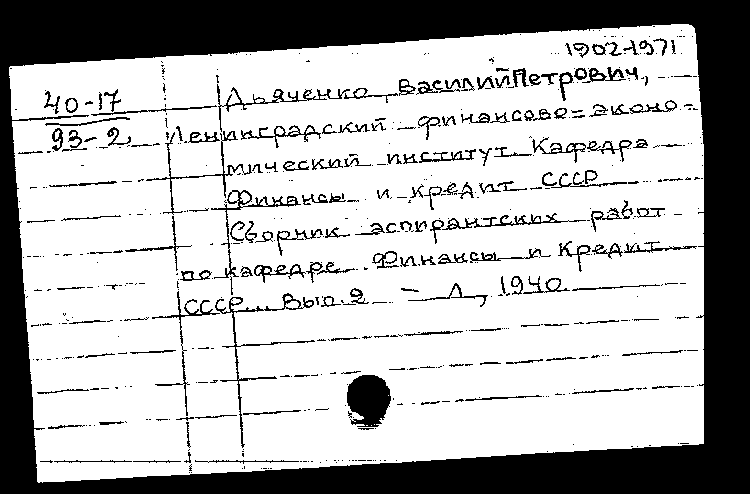 1902-1971
40-17
93-2
Дьяченко, Василий Петрович,
Ленинградский финансово=эконо=
мический институт. Кафедра
Финансы и кредит СССР
Сборник аспирантских работ
по кафедре Финансы и Кредит
СССР... Вып. 2 - Л, 1940.